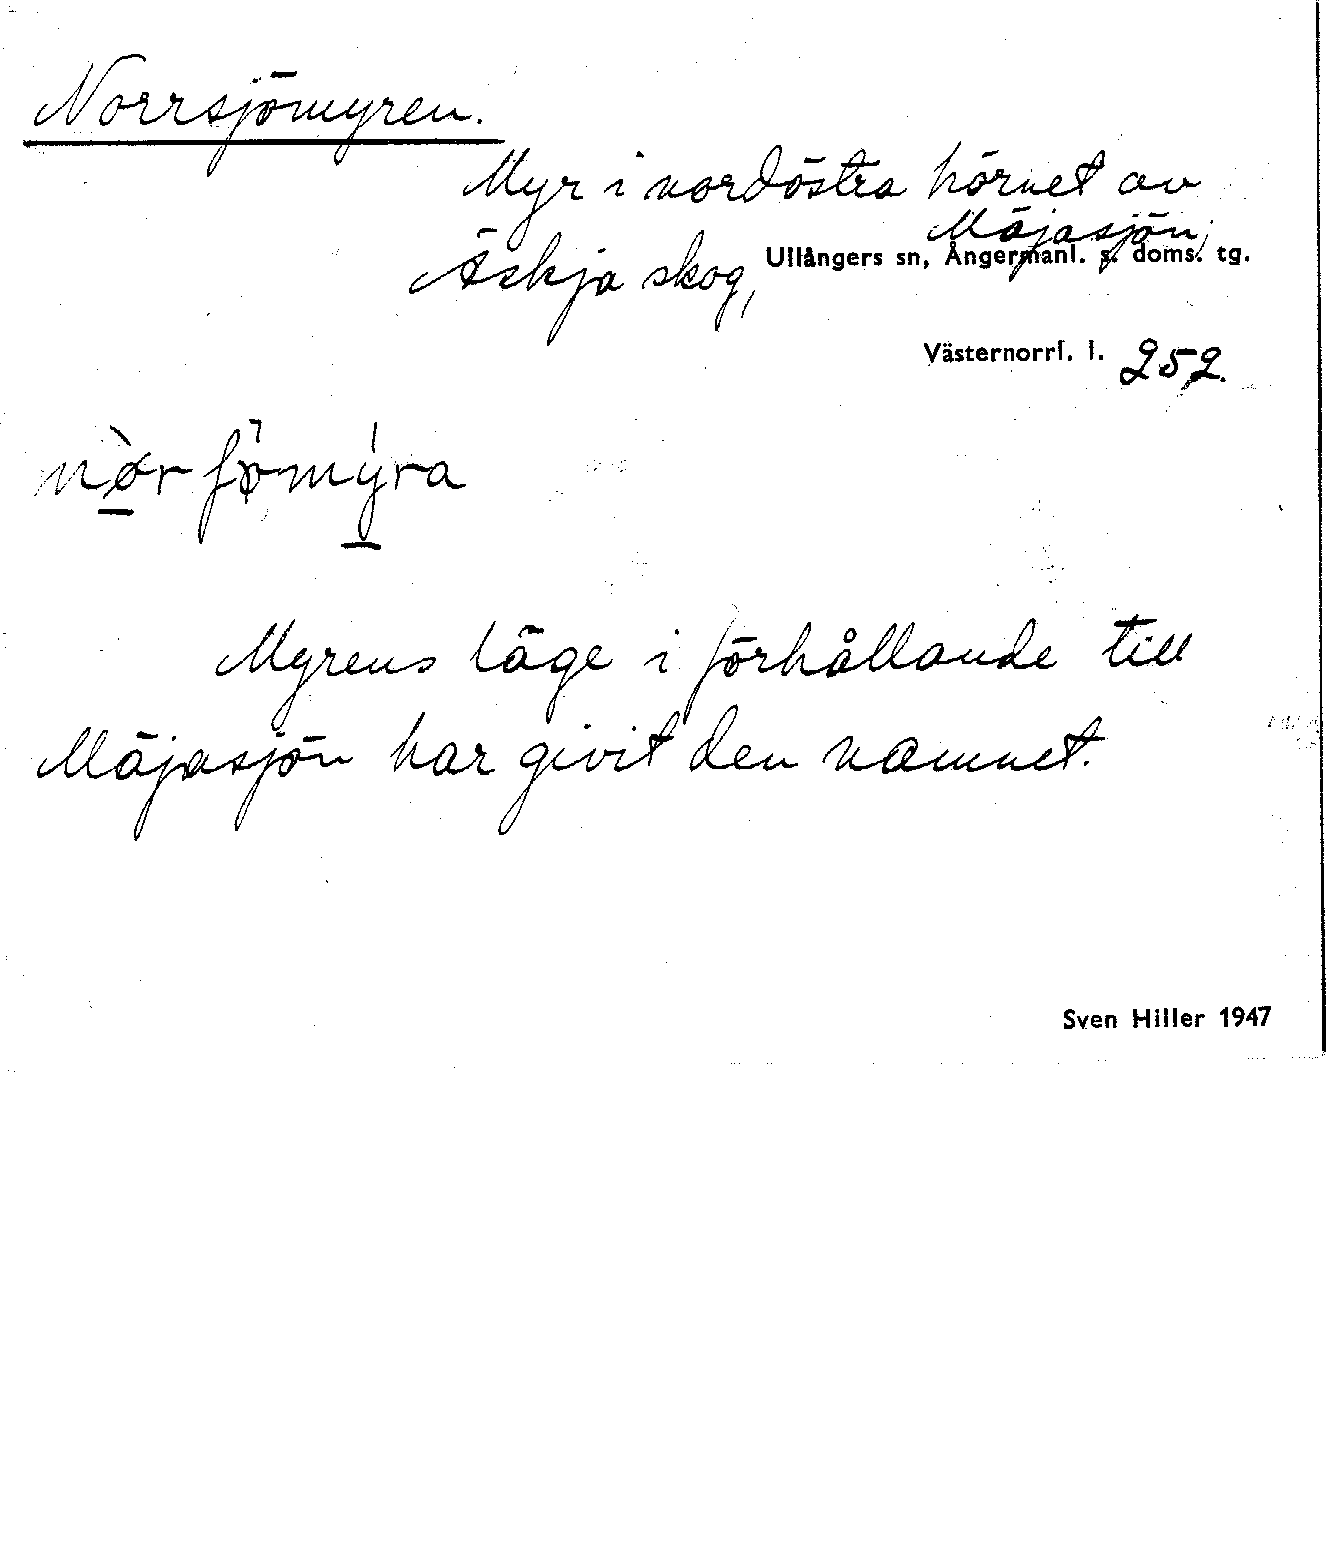 Norrsjömyren.
Myr i nordöstra hörnet av
Mäjasjön,
Äskja skog, Ullångers sn, Ångermanl. s. doms. tg.
Västernorrl. l. 252.
Myrens läge i förhållande till
Mäjasjön har givit den namnet.
Sven Hiller 1947